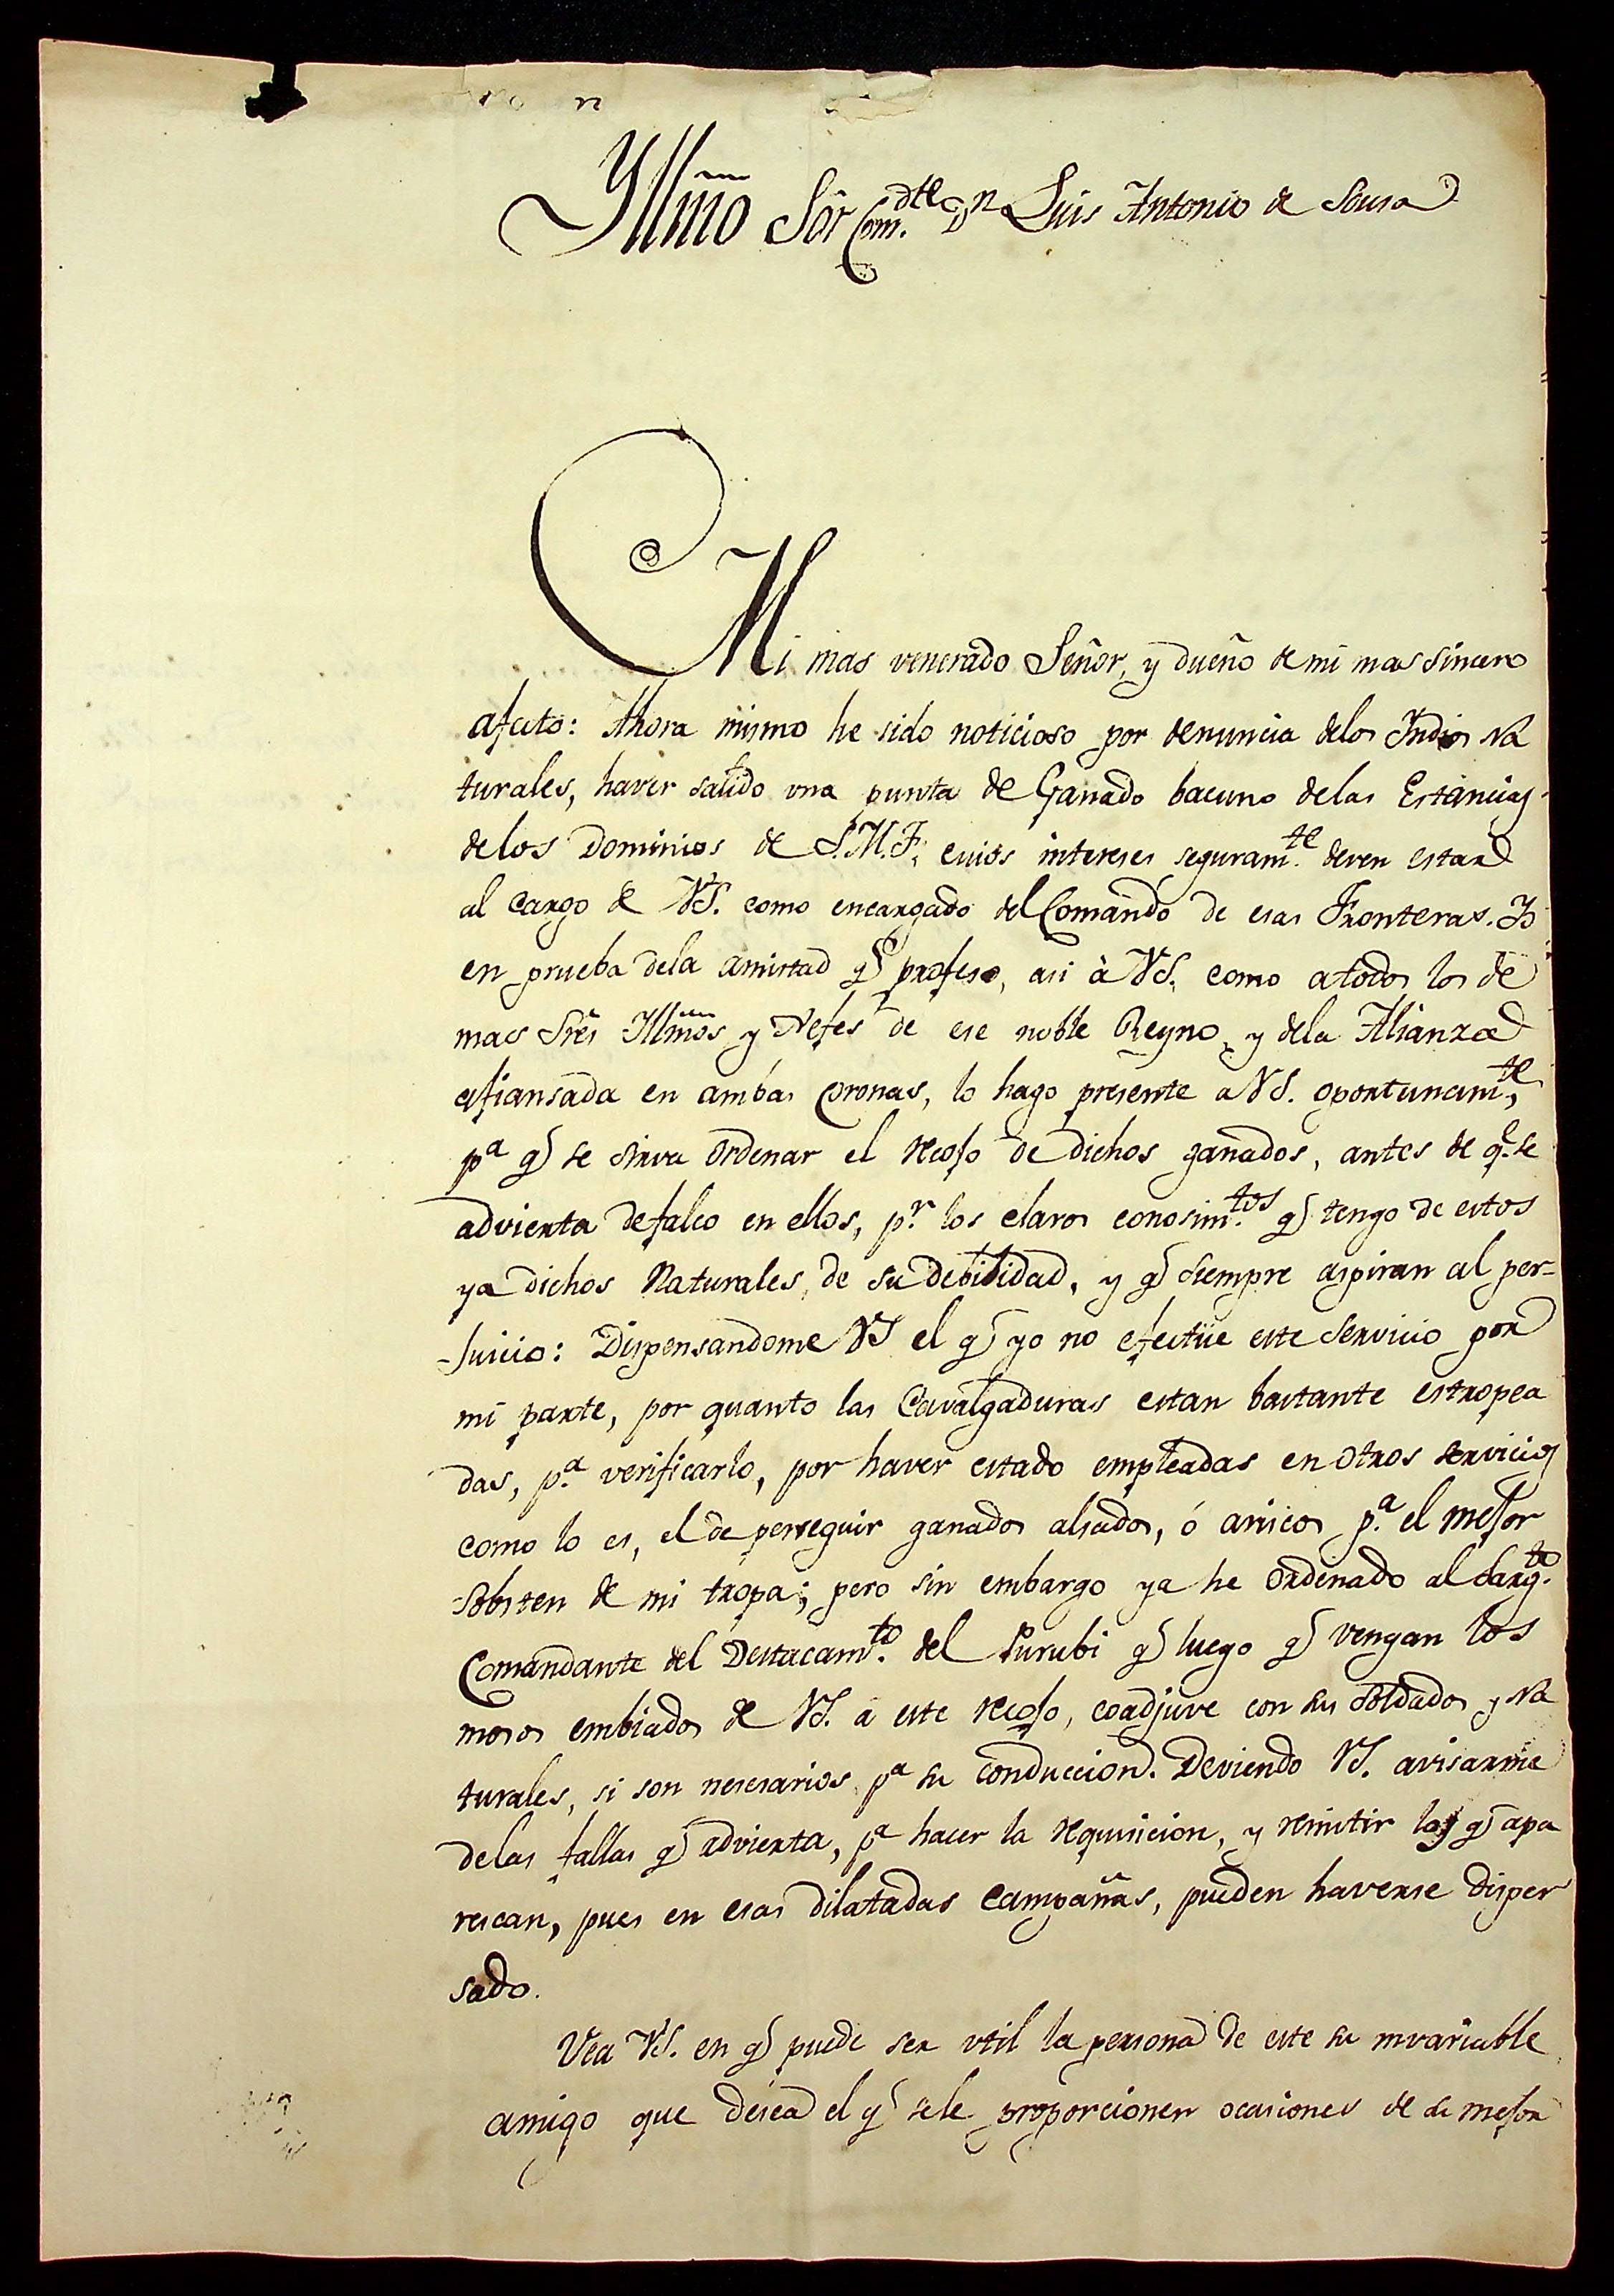 Yllm̃o Sõr Com.dte Dn Luis Antonio de Sousa
Mi mas venerado Señor, y dueño de mi mas sincero
afecto: Ahora mismo he sido noticioso por denuncia delos Indios Na
turales, haver salido una punta de Ganado bacuno delas Estancias
delos Dominios de S.M.F; cuios intereses seguramte. deven estar
al cargo de VS. como encargado del Comando de esas Fronteras. Yo
en prueba dela amistad q̃ profeso, asi à VS. como atodos los de
mas Srẽs Illm̃os y Xefes de ese noble Reyno, y dela Alianza
afiansada en ambas Coronas, lo hago presente a VS. oportunamte,
pa q̃ se sirva ordenar el recojo de dichos ganados, antes de q.e se
advierta defalco en ellos, p.r los claros conosim.tos q̃ tengo de estos
ya dichos Naturales, de su debilidad, y q̃ siempre aspiran al per=
-juicio: Dispensandome VS el q̃ yo no efectüe este servicio por
mi parte, por quanto las Cavalgaduras estan bastante estropea
das, p.a verificarlo, por haver estado empleadas en otros servicios
como lo es, el de perseguir ganados alsados, ó ariscos p.a el mejor
sobsten de mi tropa; pero sin embargo ya he ordenado al Sarg.to
Comandante del Destacam.to del Surubi q̃ luego q̃ vengan los
mosos embiados de VS. a este recojo, coadjuve con sus soldados y Na
turales, si son nesesarios pa su conduccion. Deviendo VS. avisarme
delas fallas q̃ advierta, pa hacer la requisicion, y remitir las q̃ apa
rescan, pues en esas dilatadas Campañas, pueden haverse disper
sado.
Vea VS. en q̃ puede ser util la persona de este su invariable
amigo que desea el q̃ sele proporcionen ocasiones de su mejor